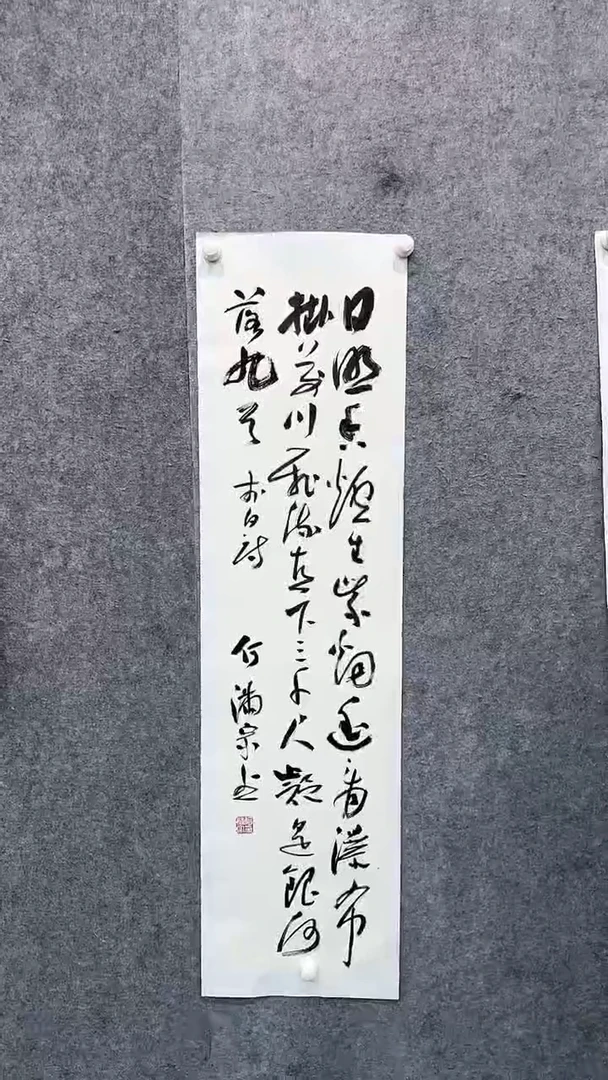 日照香爐生紫烟遥看瀑布
掛前川飛流直下三千尺疑是銀河
落九天 李白詩 何滿宗